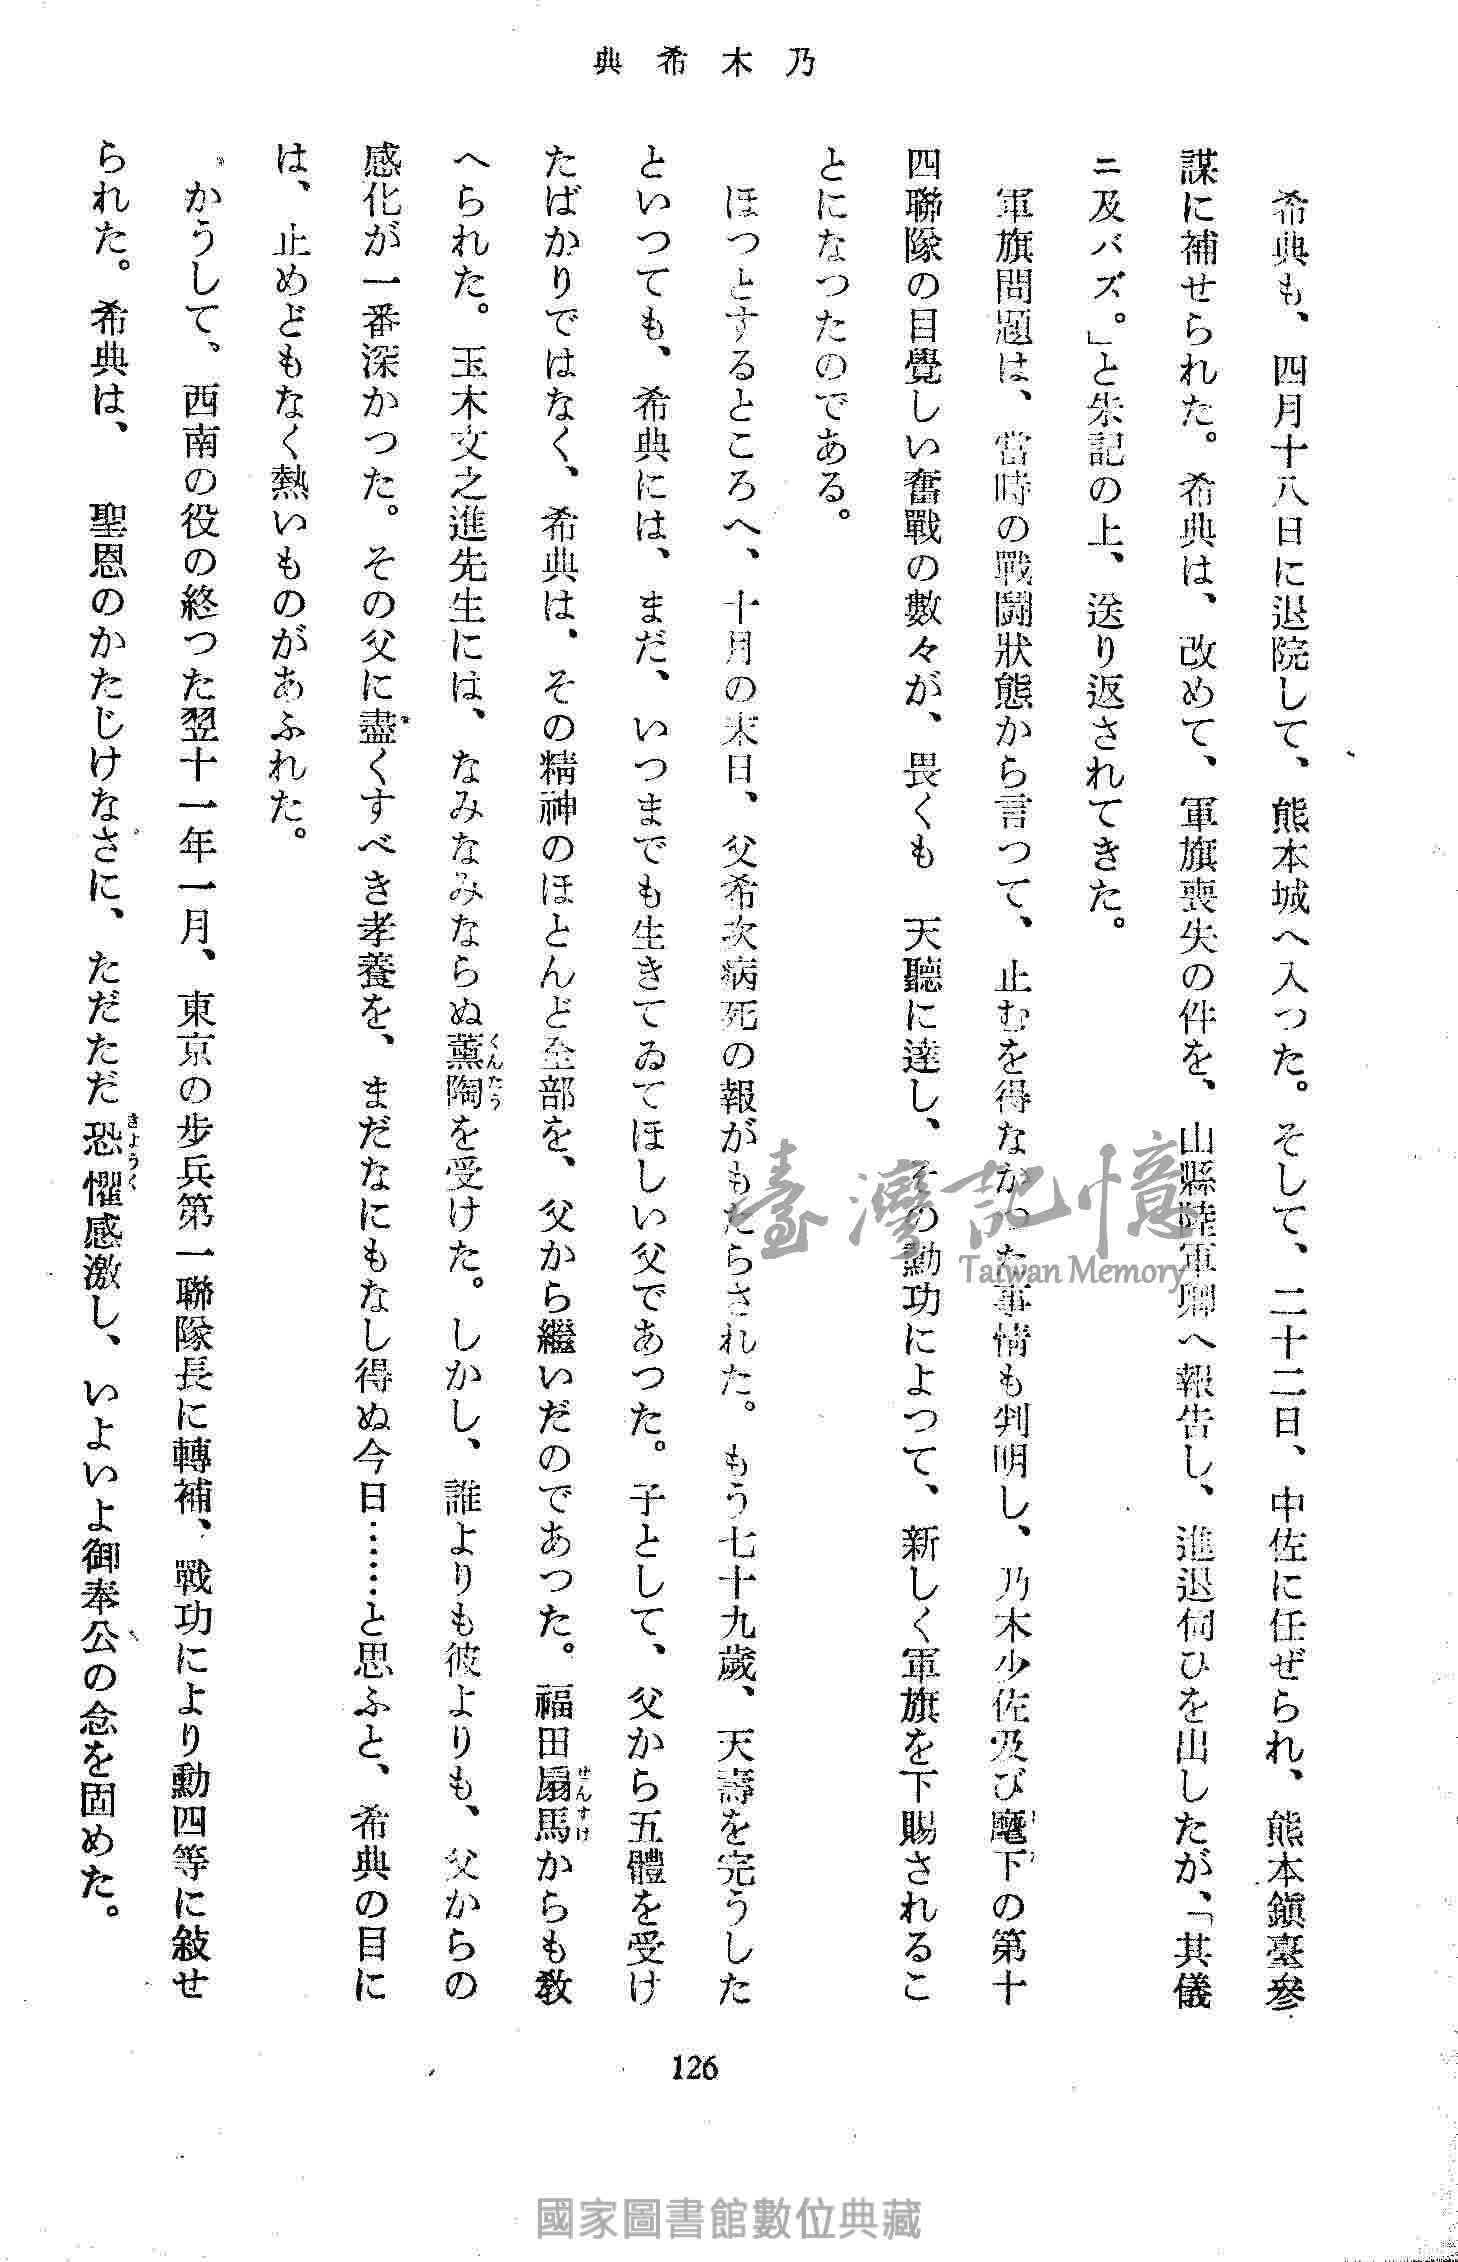 乃木希典
希典も、四月十八日に退院して、熊本城へ入つた。そして、二十二日、中佐に任ぜられ、熊本鎭臺參
謀に補せられた。希典は、改めて、軍旗喪失の件を、山縣陸軍卿へ報告し、進退伺ひを出したが、「其儀
ニ及バズ。」と朱記の上、送り返されてきた。
軍旗問題は、當時の戰鬪狀態から言つて、止むを得なかつた事情も判明し、乃木少佐及び麾下の第十
四聯隊の目覺しい奮戰の數々が、畏くも　天聽に達し、その勳功によつて、新しく軍旗を下賜されるこ
とになつたのである。
ほつとするところへ、十月の末日、父希次病死の報がもたらされた。もう七十九歲、天壽を完うした
といつても、希典には、まだ、いつまでも生きてゐてほしい父であつた。子として、父から五體を受け
たばかりではなく、希典は、その精神のほとんど全部を、父から繼いだのであつた。福田扇馬からも敎
せんすけ
へられた。玉木文之進先生には、なみなみならぬ薰陶を受けた。しかし、誰よりも彼よりも、父からの
くんたう
感化が一番深かつた。その父に盡くすべき孝養を、まだなにもなし得ぬ今日………と思ふと、希典の目に
は、止めどもなく熱いものがあふれた。
かうして、西南の役の終つた翌十一年一月、東京の步兵第一聯隊長に轉補、戰功により勳四等に敍せ
られた。希典は、　聖恩のかたじけなさに、ただただ恐懼感激し、いよいよ御奉公の念を固めた。
きようく
126
臺灣記憶
Taiwan Memory
國家圖書館數位典藏